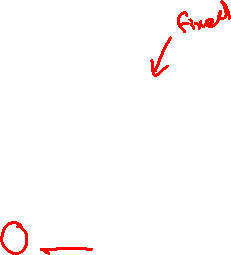 fixed
O —